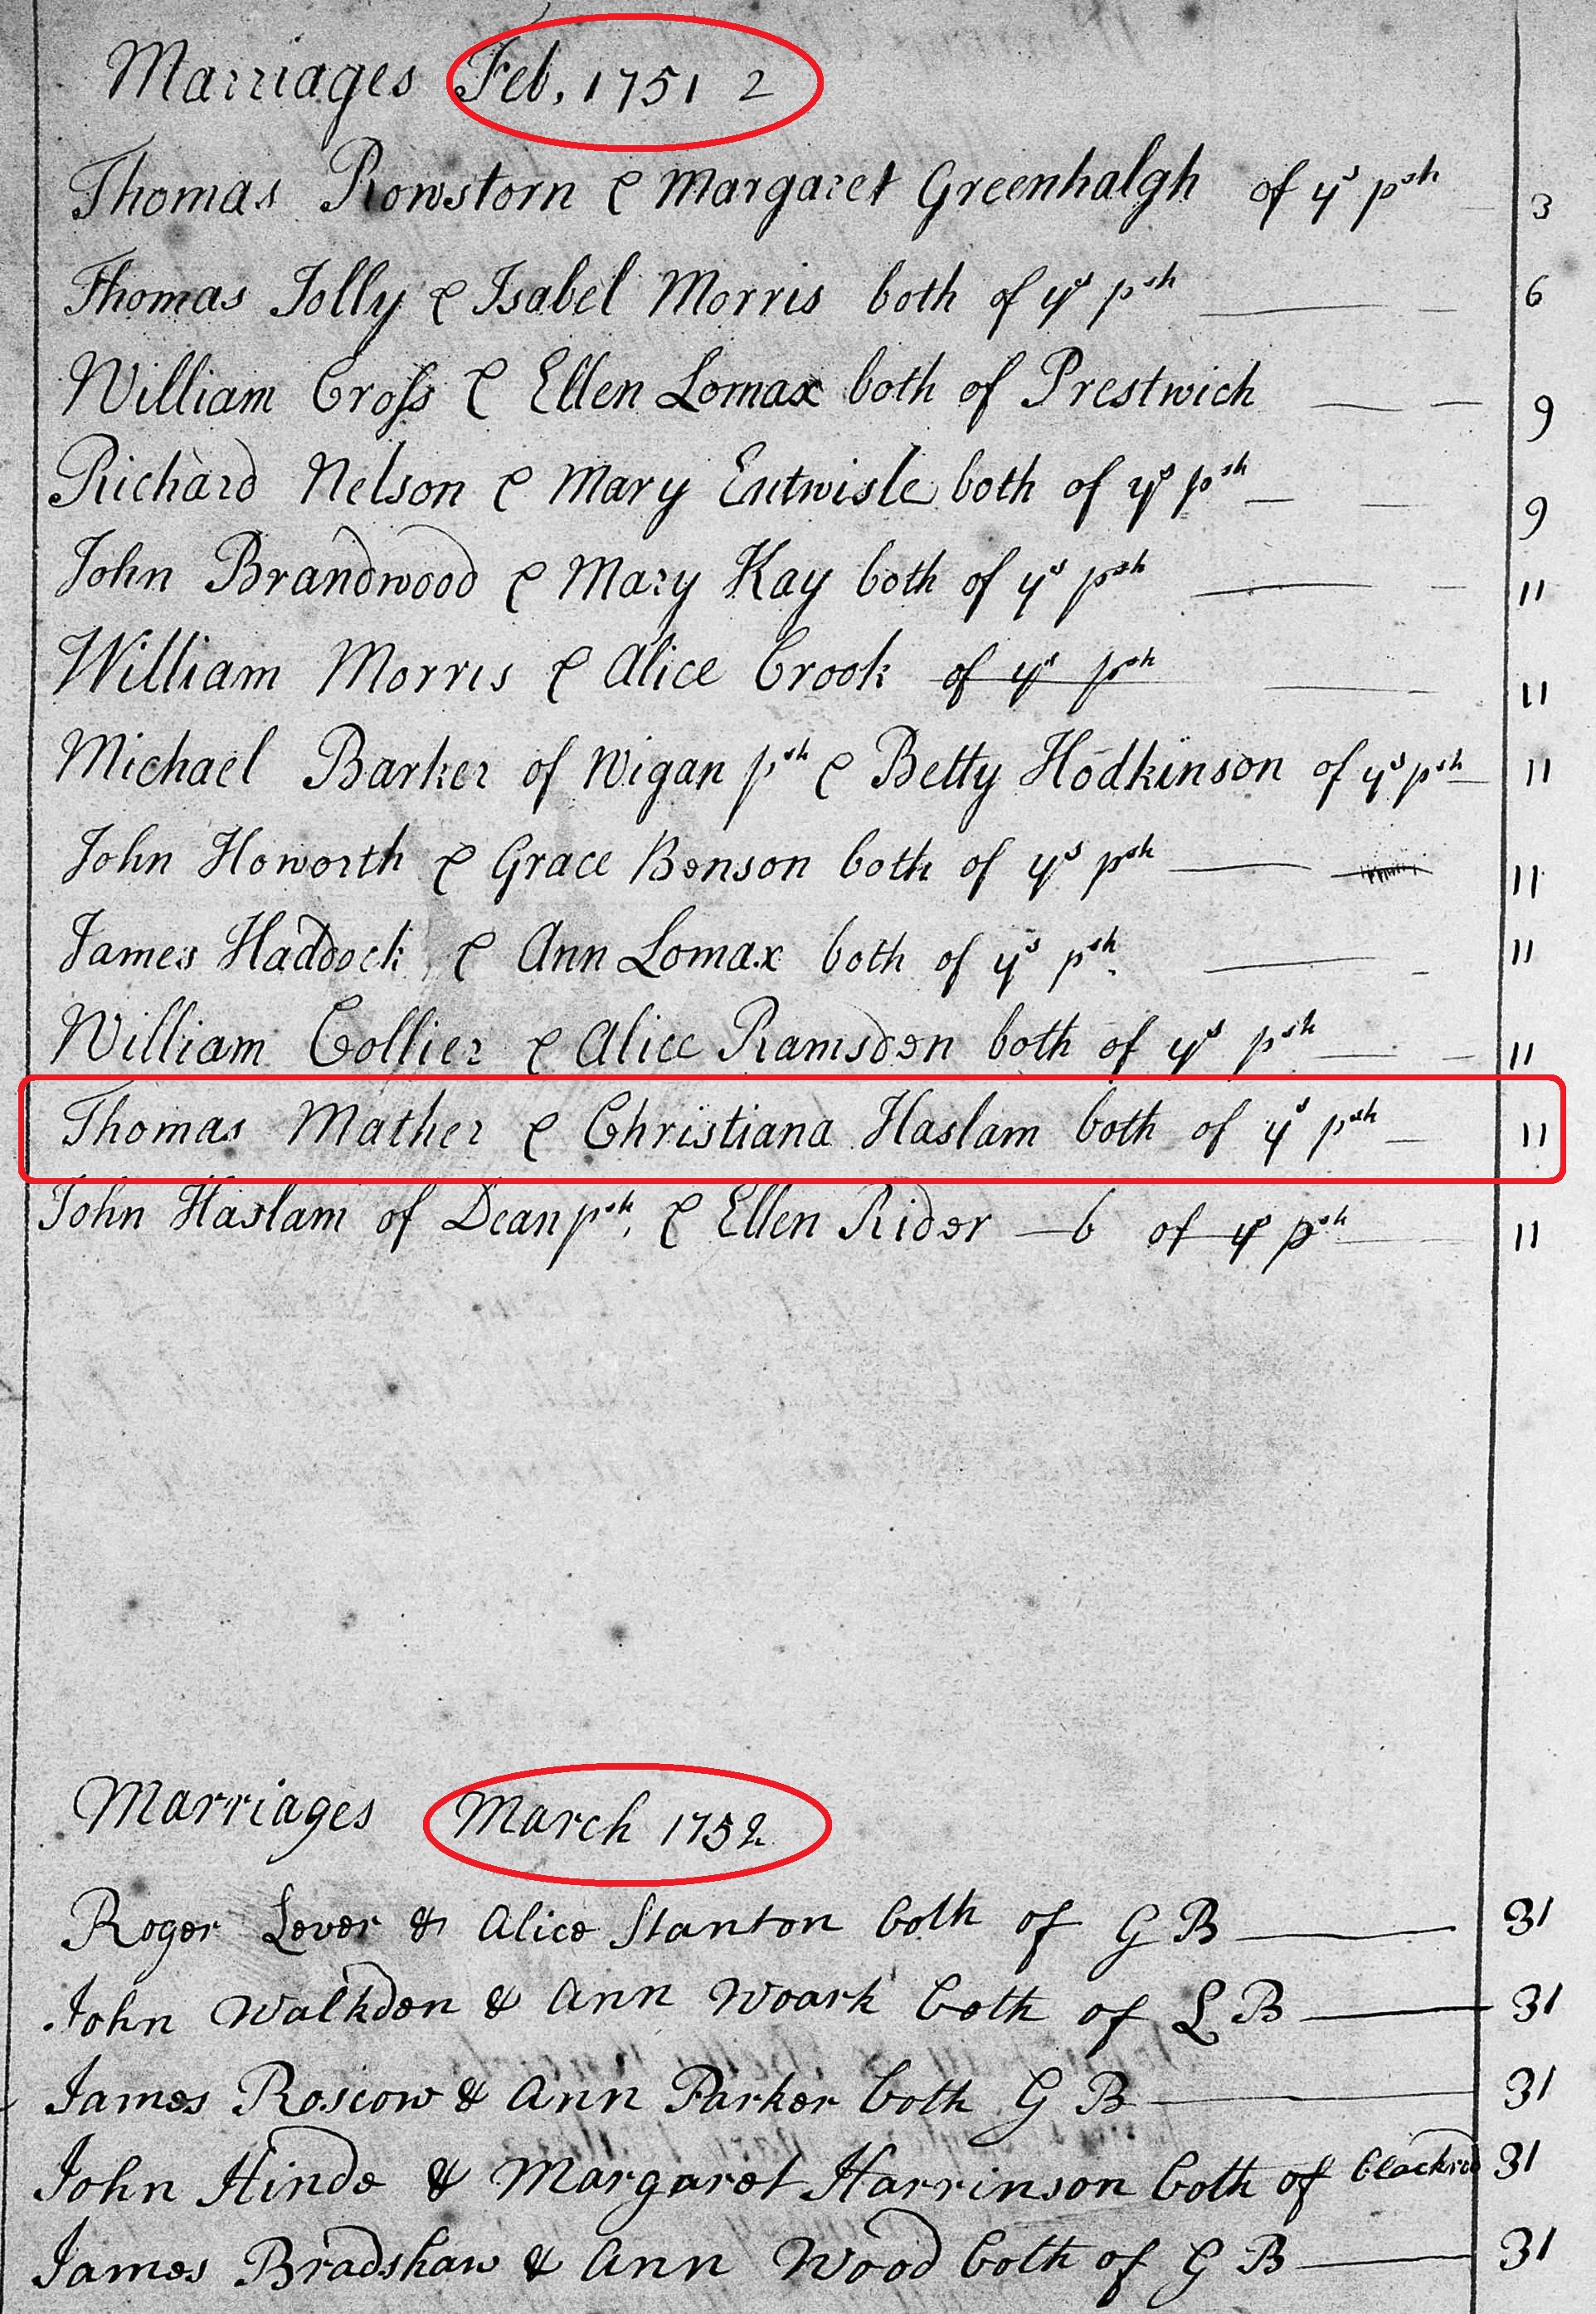 Marriages Feb. 1751 2
Thomas Rowstorn & Margaret Greenhalgh of ys psh 3
Thomas Jolly & Isabel Morris both of ys psh 6
William Cross & Ellen Lomax both of Prestwich 9
Richard Nelson & Mary Entwisle both of ys psh 9
John Brandwood & Mary Kay both of ys psh 11
William Morris & Alice Crook of ys psh 11
Michael Barker of Wigan psh & Betty Hodkinson of ys psh 11
John Howorth & Grace Benson both of ys psh 11
James Haddock & Ann Lomax both of ys psh. 11
William Collier & Alice Ramsden both of ys psh 11
Thomas Mather & Christiana Haslam both of ys psh 11
John Haslam of Dean psh. & Ellen Rider b of ys psh 11
Marriages March 1752
Roger Lever & Alice Stanton both of G B 31
John Walkden & Ann Woark both of L B 31
James Roscow & Ann Parker both G B 31
John Hinde & Margaret Harrinson both of blackrod 31
James Bradshaw & Ann Wood both of G B 31